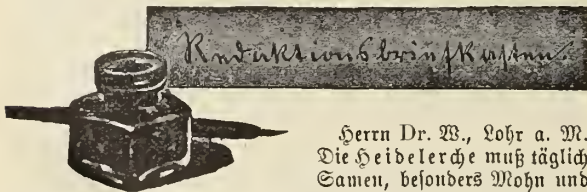 Redaktionsbriefkasten.
Herrn Dr. W., Lohr a. M.
Die Heidelerche muß täglich
Samen, besonders Mohn und